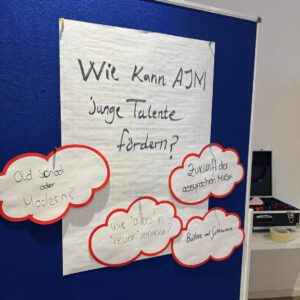 Wie kann AJM
junge Talente
fördern?
Old school
oder
Modern?
Wie "altes" in
"neuer"
Zukunft der
Bühne und